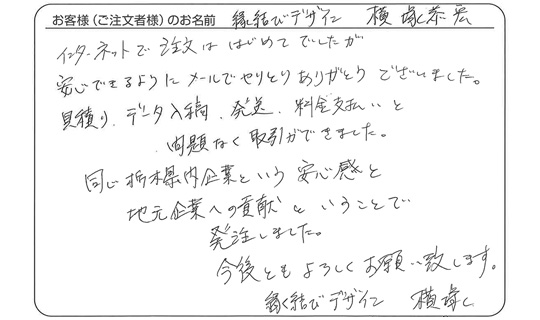 お客様（ご注文者様）のお名前 縁結びデザイン 横塚恭宏
インターネットで注文ははじめてでしたが
安心できるようにメールでやりとりありがとうございました。
見積り、データ入稿、発送、料金支払いと
問題なく取引ができました。
同じ栃木県内企業という安心感と
地元企業への貢献ということで
発注しました。
今後ともよろしくお願い致します。
縁結びデザイン 横塚